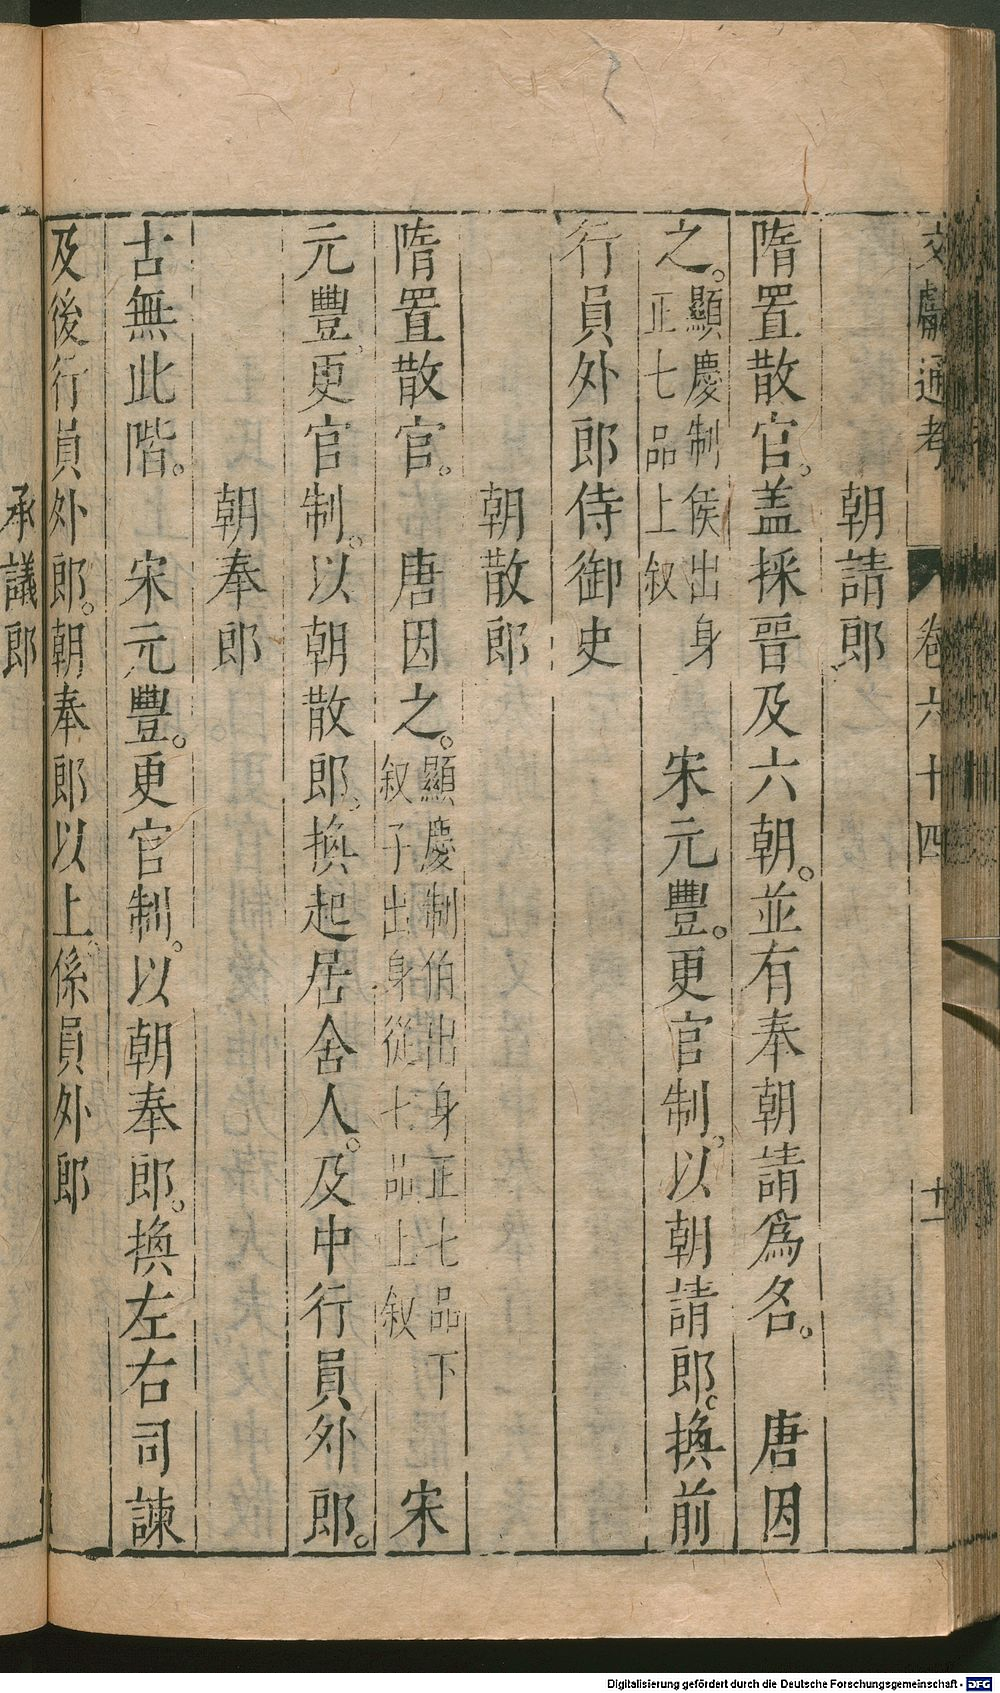 文獻通考 卷六十四 十一
朝請郎
隋置散官。蓋採晉及六朝。並有奉朝請爲名。 唐因
之。顯慶制侯出身正七品上叙 宋元豐。更官制。以朝請郎。換前
行員外郎侍御史
朝散郎
隋置散官。 唐因之。顯慶制伯出身正七品下叙子出身從七品上叙 宋
元豐更官制。以朝散郎。換起居舍人。及中行員外郎。
朝奉郎
古無此階。 宋元豐。更官制。以朝奉郎。換左右司諫
及後行員外郎。朝奉郎以上。係員外郎
承議郎
Digitalisierung gefördert durch die Deutsche Forschungsgemeinschaft - DFG